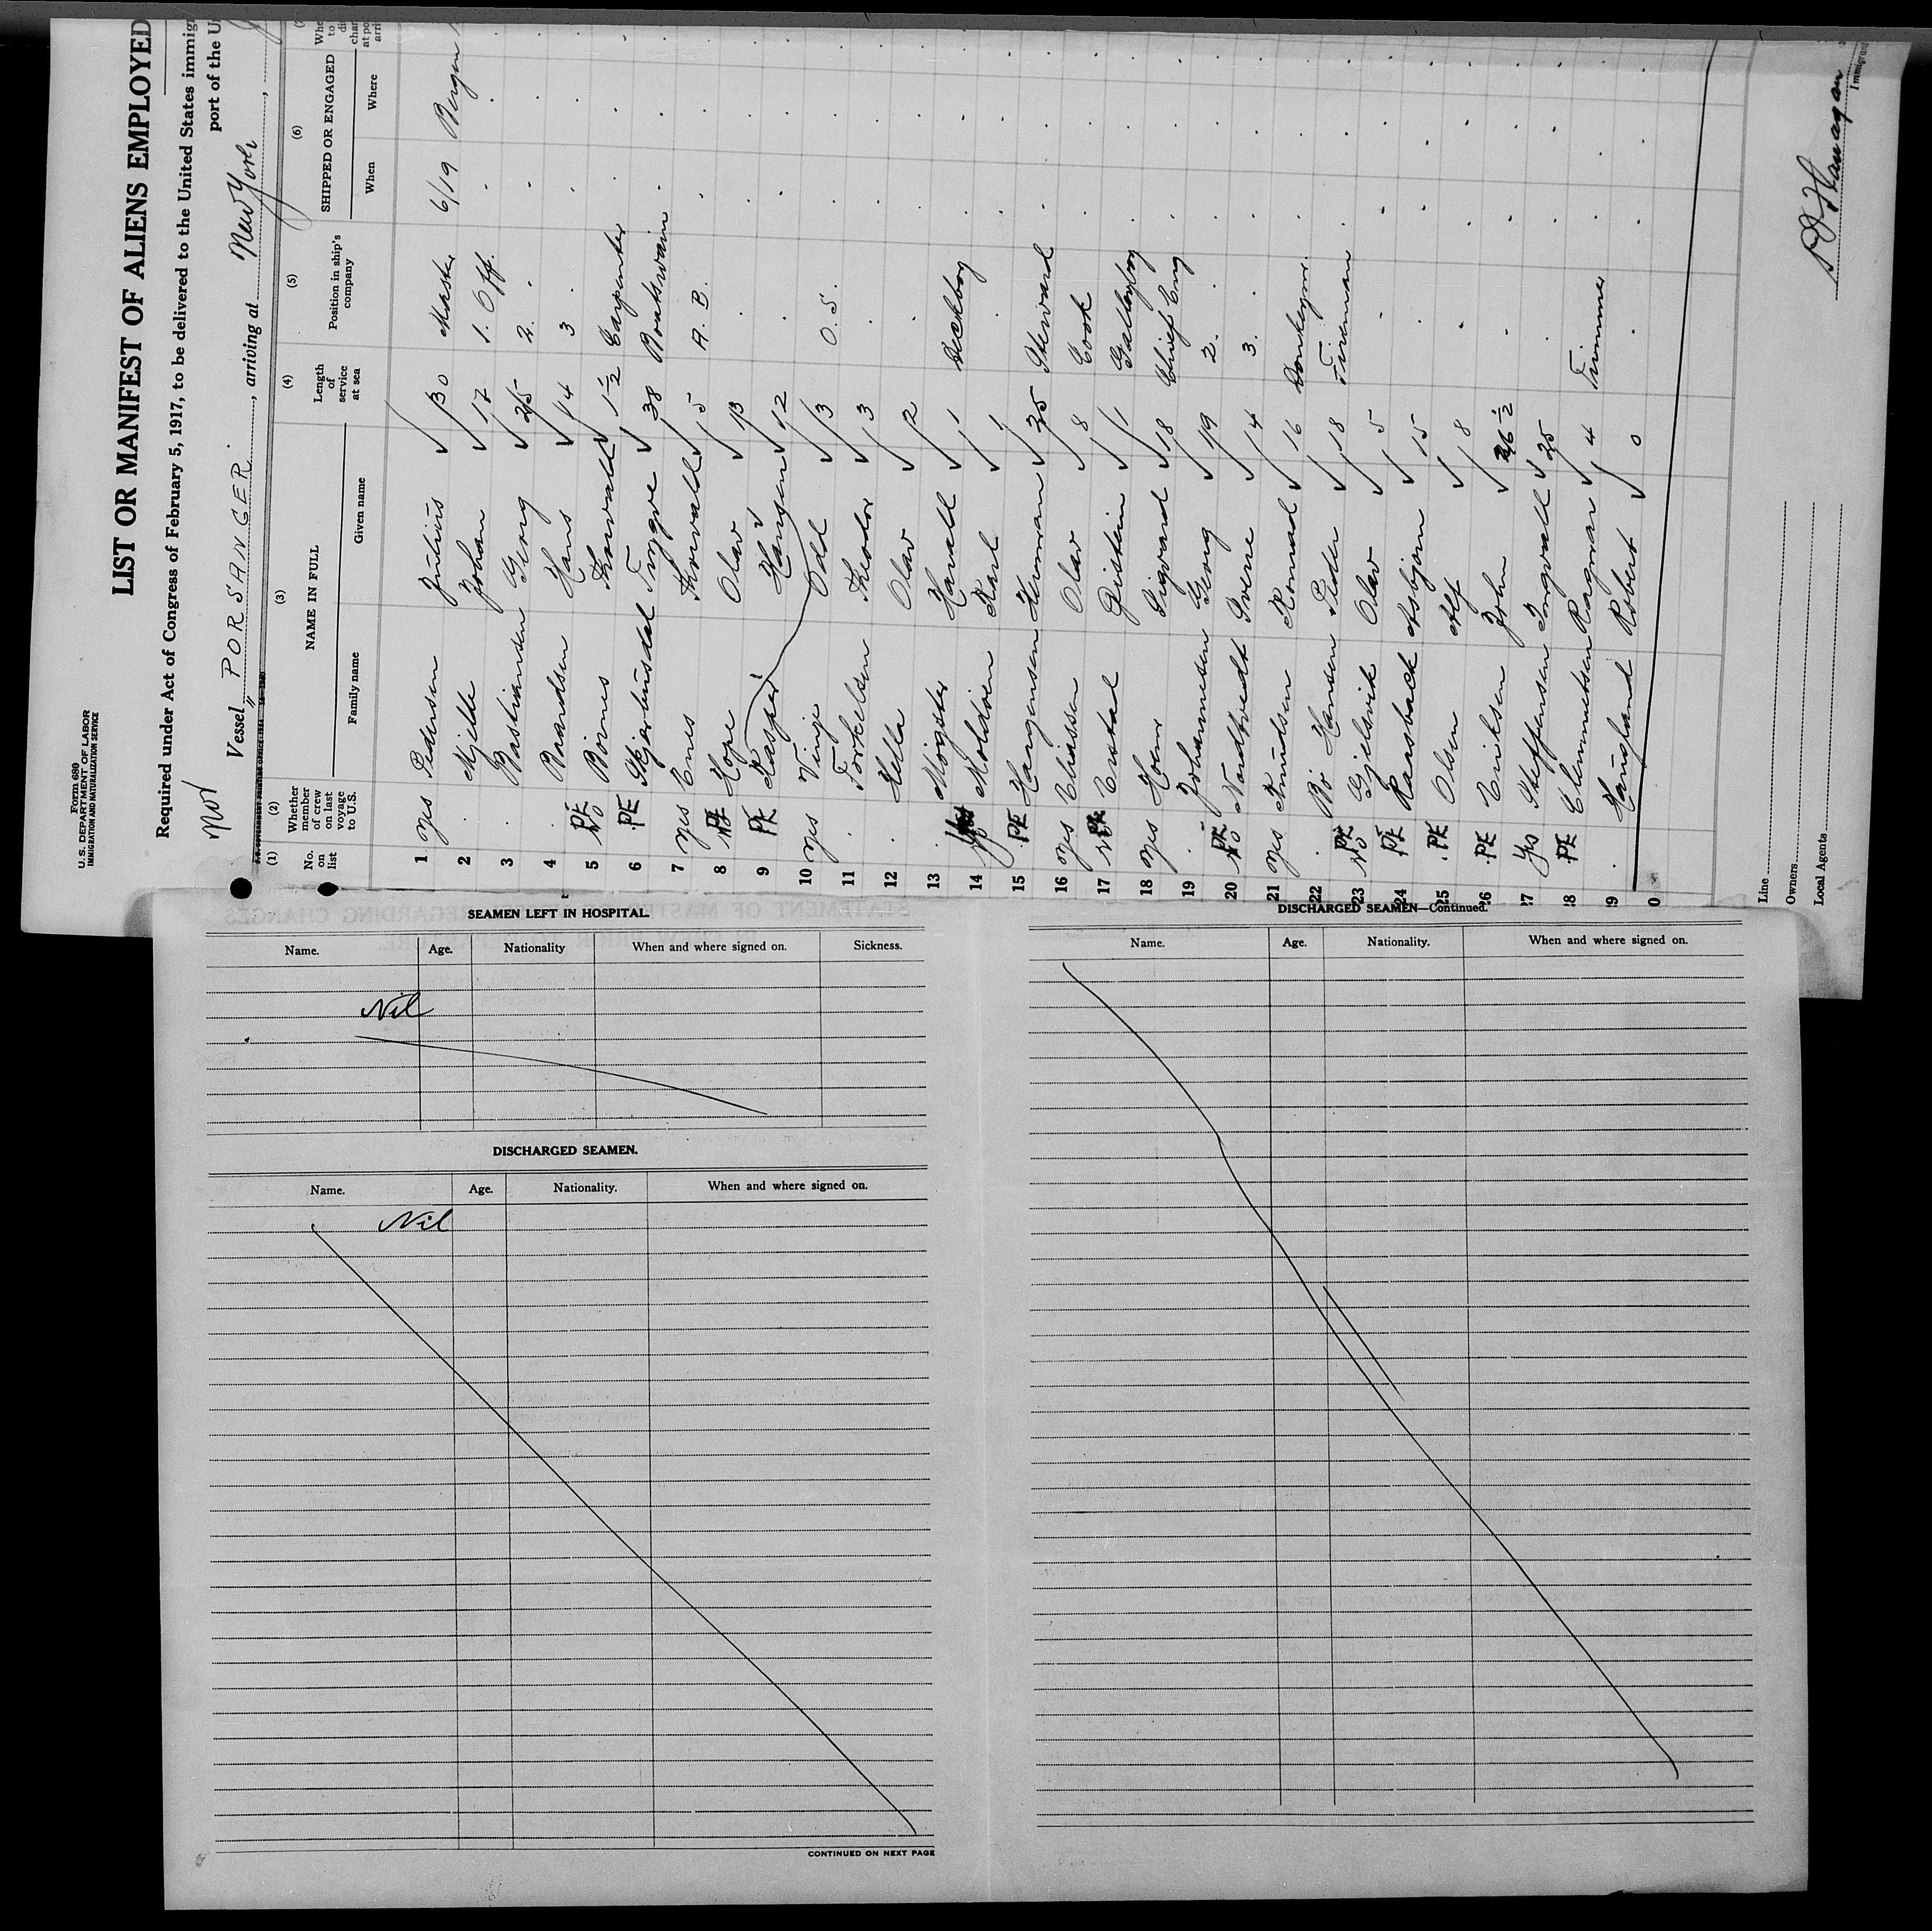 Form 680
U. S. DEPARTMENT OF LABOR
IMMIGRATION AND NATURALIZATION SERVICE
LIST OR MANIFEST OF ALIENS EMPLOYED
Required under Act of Congress of February 5, 1917, to be delivered to the United States immigr
port of the U
Vessel "PORSANGER", arriving at New York,
(1) (2) (3) (4) (5) (6)
No. on list Whether member of crew on last voyage to U.S. NAME IN FULL Length of service at sea Position in ship's company SHIPPED OR ENGAGED
Family name Given name When Where
1 yes Pedersen Julius 30 Master 6/19 Bergen
2 . Mjelde Johan 17 1. Off.
3 Bastiansen Georg 25 2.
4 Baardsen Hans 14 3
5 PE No Boines Thorvald 1 1/2 Carpenter
6 PE Skjerbusdal Trygve 38 Boatswain
7 yes Enes Thorvald 5 A. B.
8 PE No Hope Olav 13
9 PE Kasper Hansen 12
10 yes Vinje Odd 3 O. S.
11 . Torkelsen Theodor 3
12 Hella Olav 2
13 . Møgster Harald 1 Deckboy
14 Yes Moldøen Karl 1
15 PE Haagensen Herman 35 Steward
16 yes Eliassen Olav 8 Cook
17 PE No Eistein 1 Galleyboy
18 yes Sigvard 18 Chief Eng
19 . Johannesen Georg 19 2.
20 PE No Nordtvedt Sverre 14 3.
21 yes Knudsen Konrad 16 Donkeym.
22 . Bö Hansen Peder 18 Fireman
23 PE No Gjelsvik Olav 5
24 PE Ramsback Asbjørn 15
25 PE Olsen Alf 8
26 PE Eriksen John 26 1/2
27 Yes Steffensen Ingvald 25
28 PE Clemmetsen Ragnar 4 Trimmer
29 . Hausland Robert 0
Line
Owners
Local Agents
SEAMEN LEFT IN HOSPITAL.
Name. Age. Nationality When and where signed on. Sickness.
Nil
DISCHARGED SEAMEN.
Name. Age. Nationality. When and where signed on.
Nil
CONTINUED ON NEXT PAGE
DISCHARGED SEAMEN—Continued.
Name. Age. Nationality. When and where signed on.